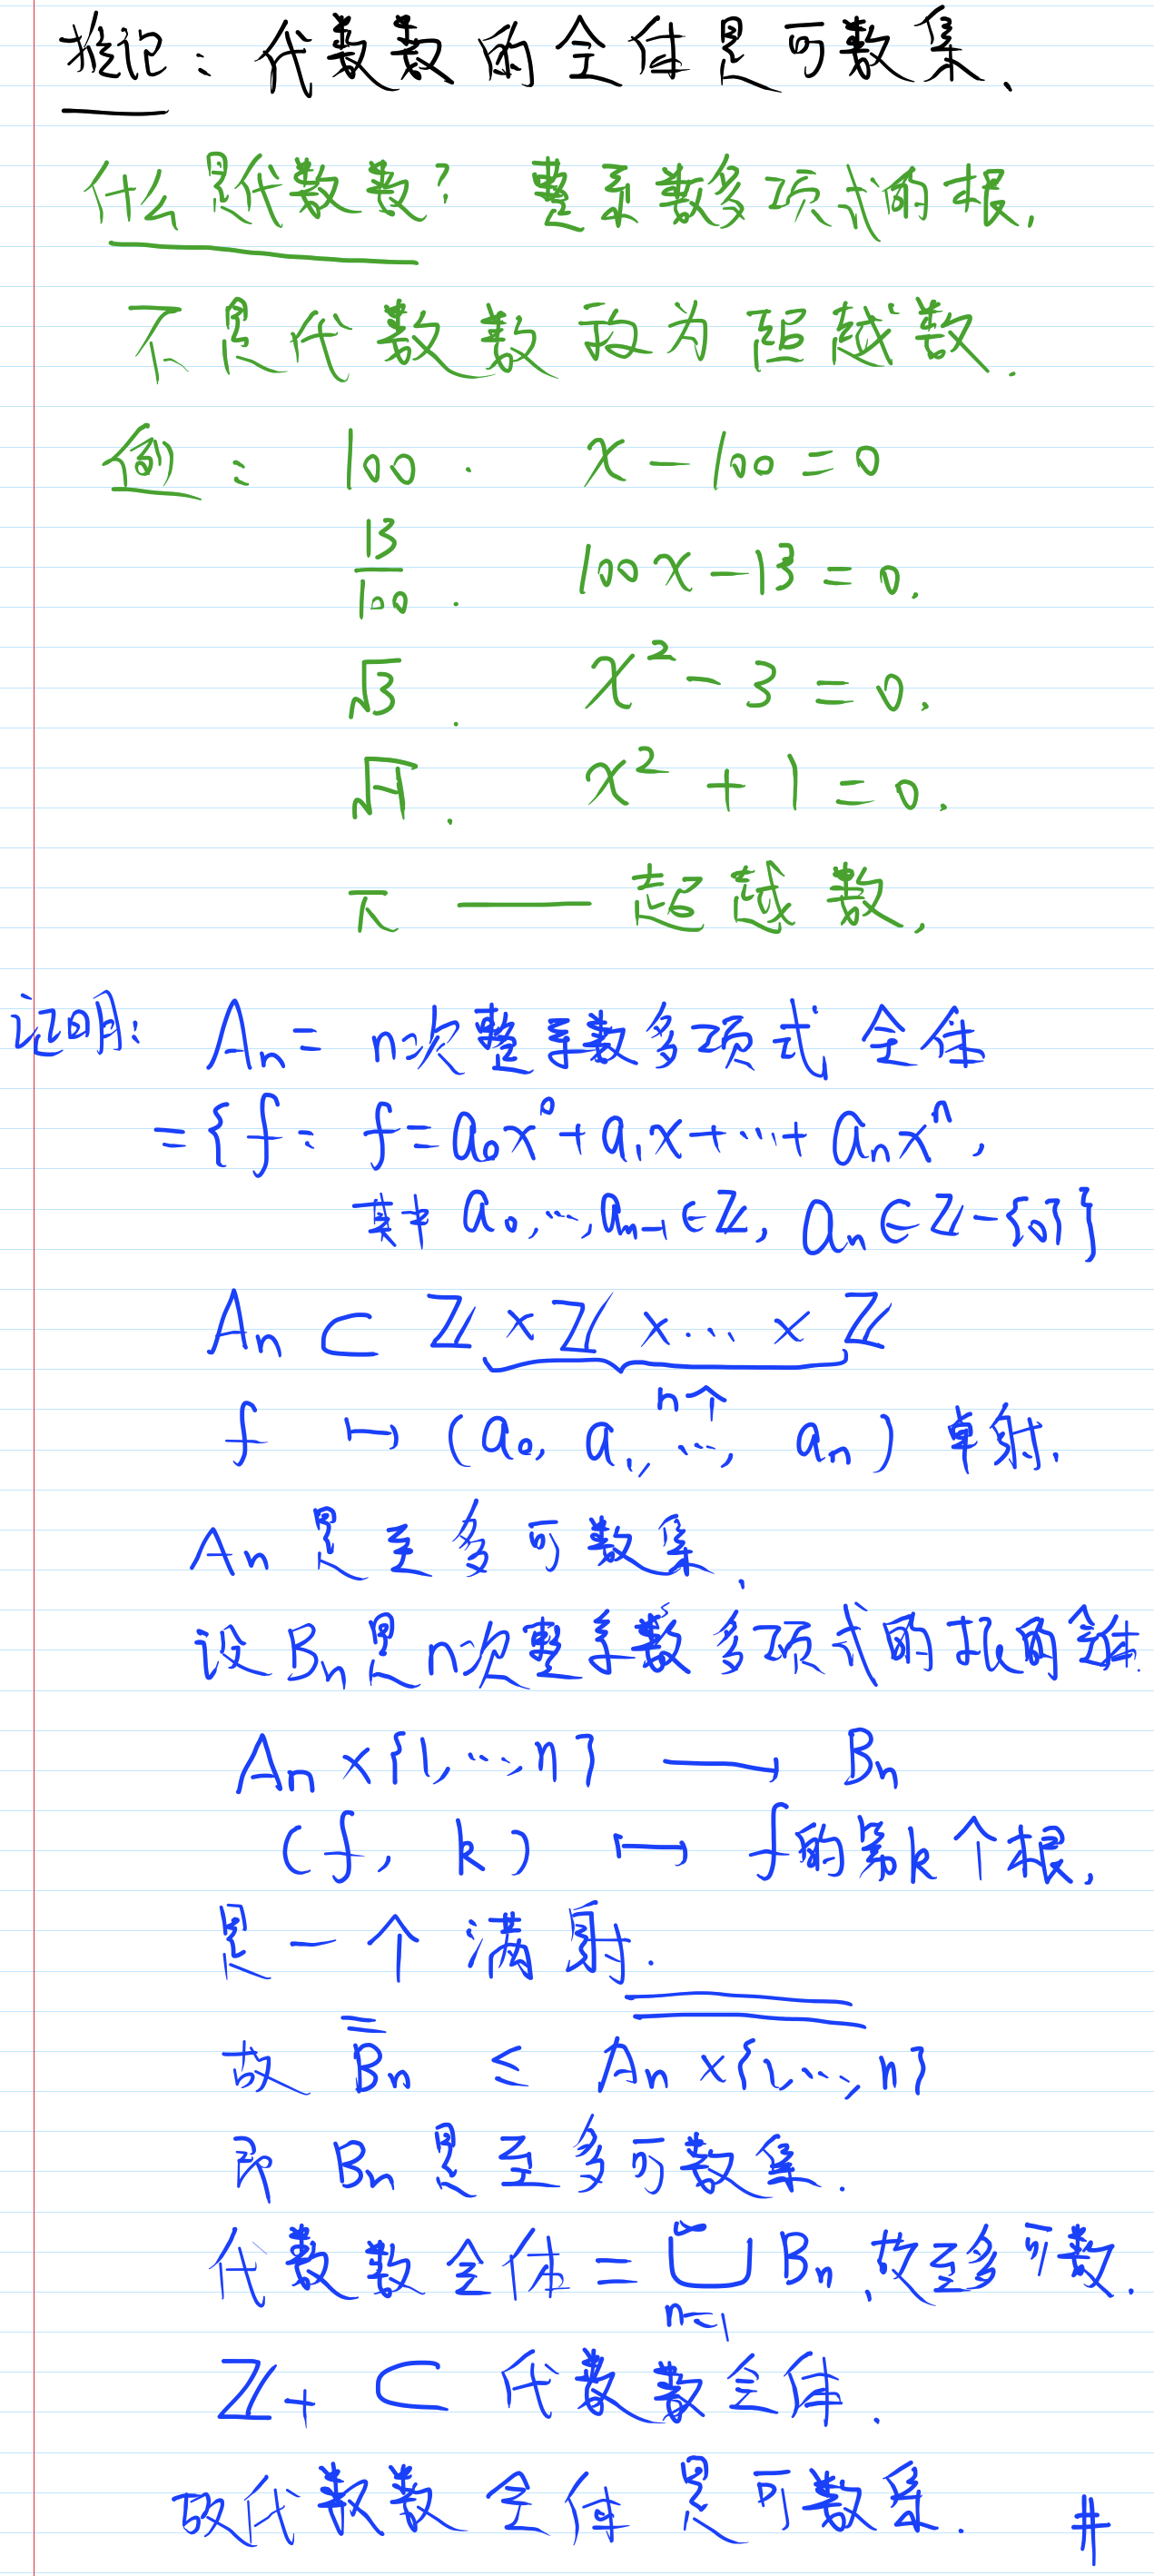 推论：代数数的全体是可数集.
什么是代数数？ 整系数多项式的根.
不是代数数教为超越数.
例： 100. x－100＝0
13/100. 100x－13＝0.
√3. x²－3＝0.
√-1. x²＋1＝0.
π —— 超越数.
证明： Aₙ＝ n次整系数多项式全体
＝{f： f＝a₀x⁰＋a₁x＋⋯＋aₙxⁿ,
其中 a₀,⋯,aₙ₋₁∈ℤ, aₙ∈ℤ－{0}}
Aₙ ⊂ ℤ×ℤ×⋯×ℤ
n个
f ↦ (a₀, a₁, ⋯, aₙ) 单射.
Aₙ 是至多可数集.
设 Bₙ是n次整系数多项式的根的全体.
Aₙ×{1,⋯,n} ⟶ Bₙ
(f, k) ↦ f的第k个根,
是一个满射.
故 Bₙ ≤ Aₙ×{1,⋯,n}
即 Bₙ 是至多可数集.
代数数全体＝⋃ₙ₌₁^∞ Bₙ,故至多可数.
ℤ₊ ⊂ 代数数全体.
故代数数全体是可数集. #